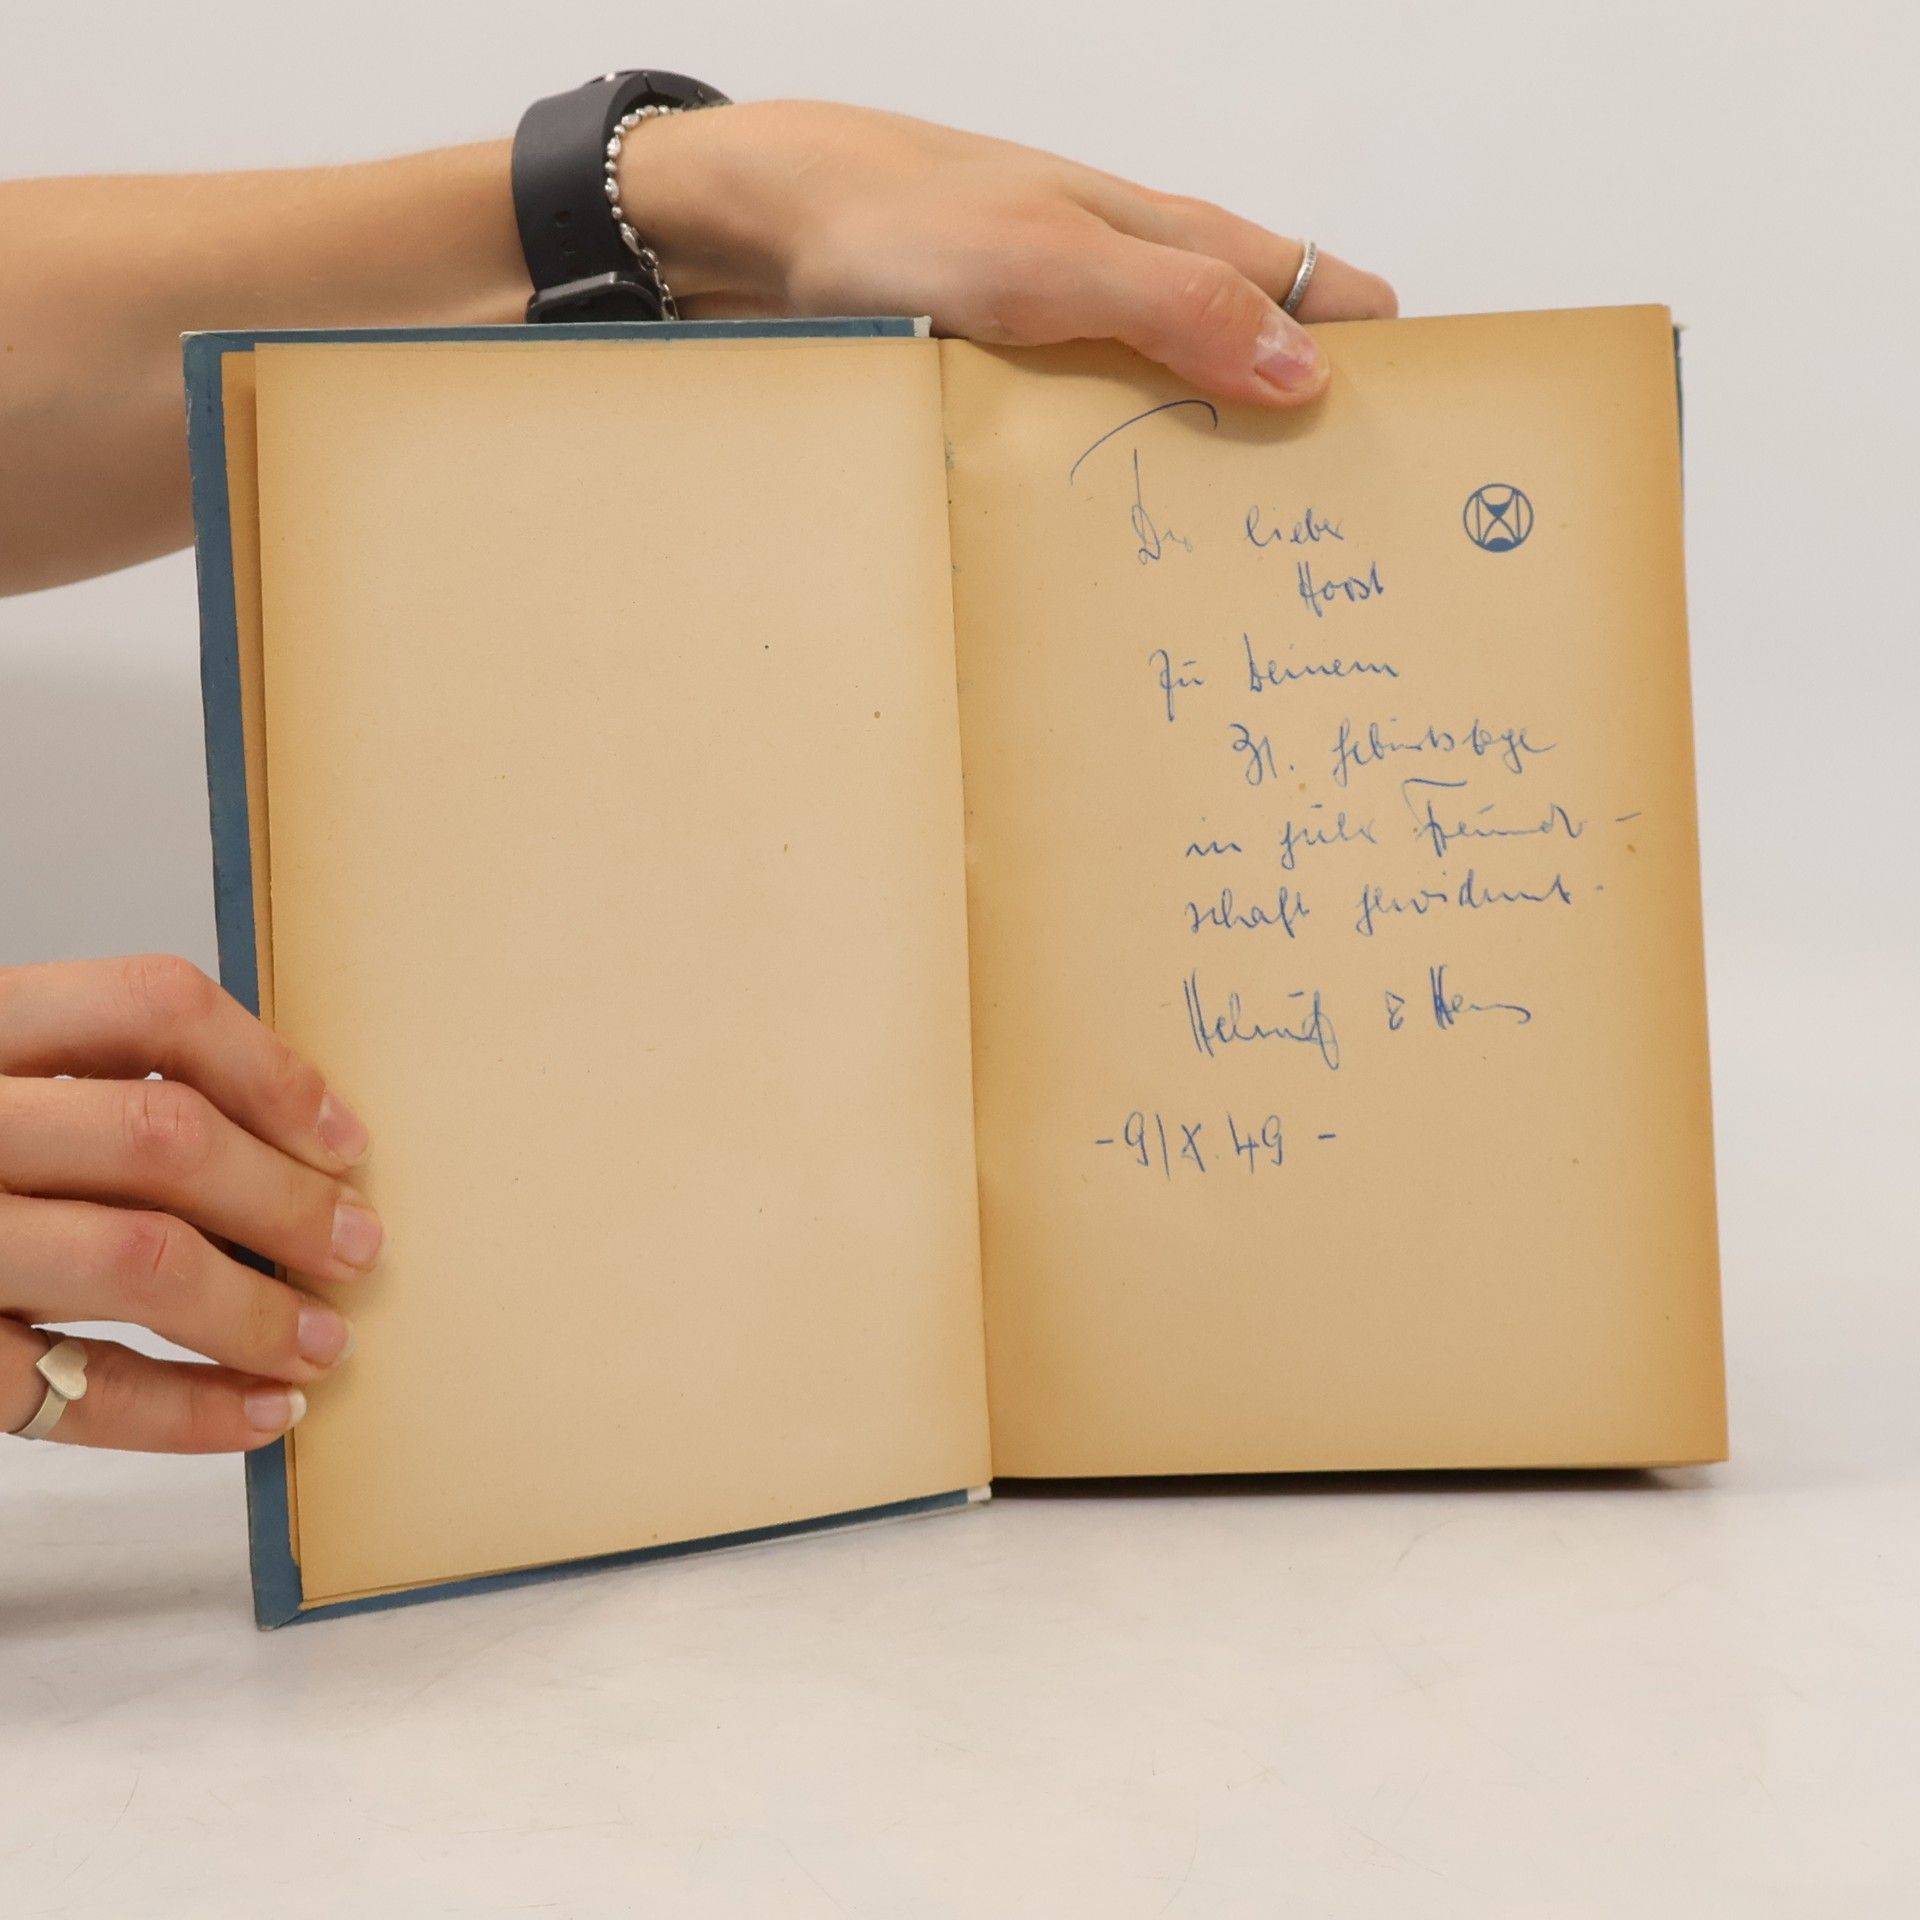 Dir lieber
Horst
Zu Deinem
31. Geburtstage
in guter Freund-
schaft gewidmet.
Helmut & Hans
-9/X.49-